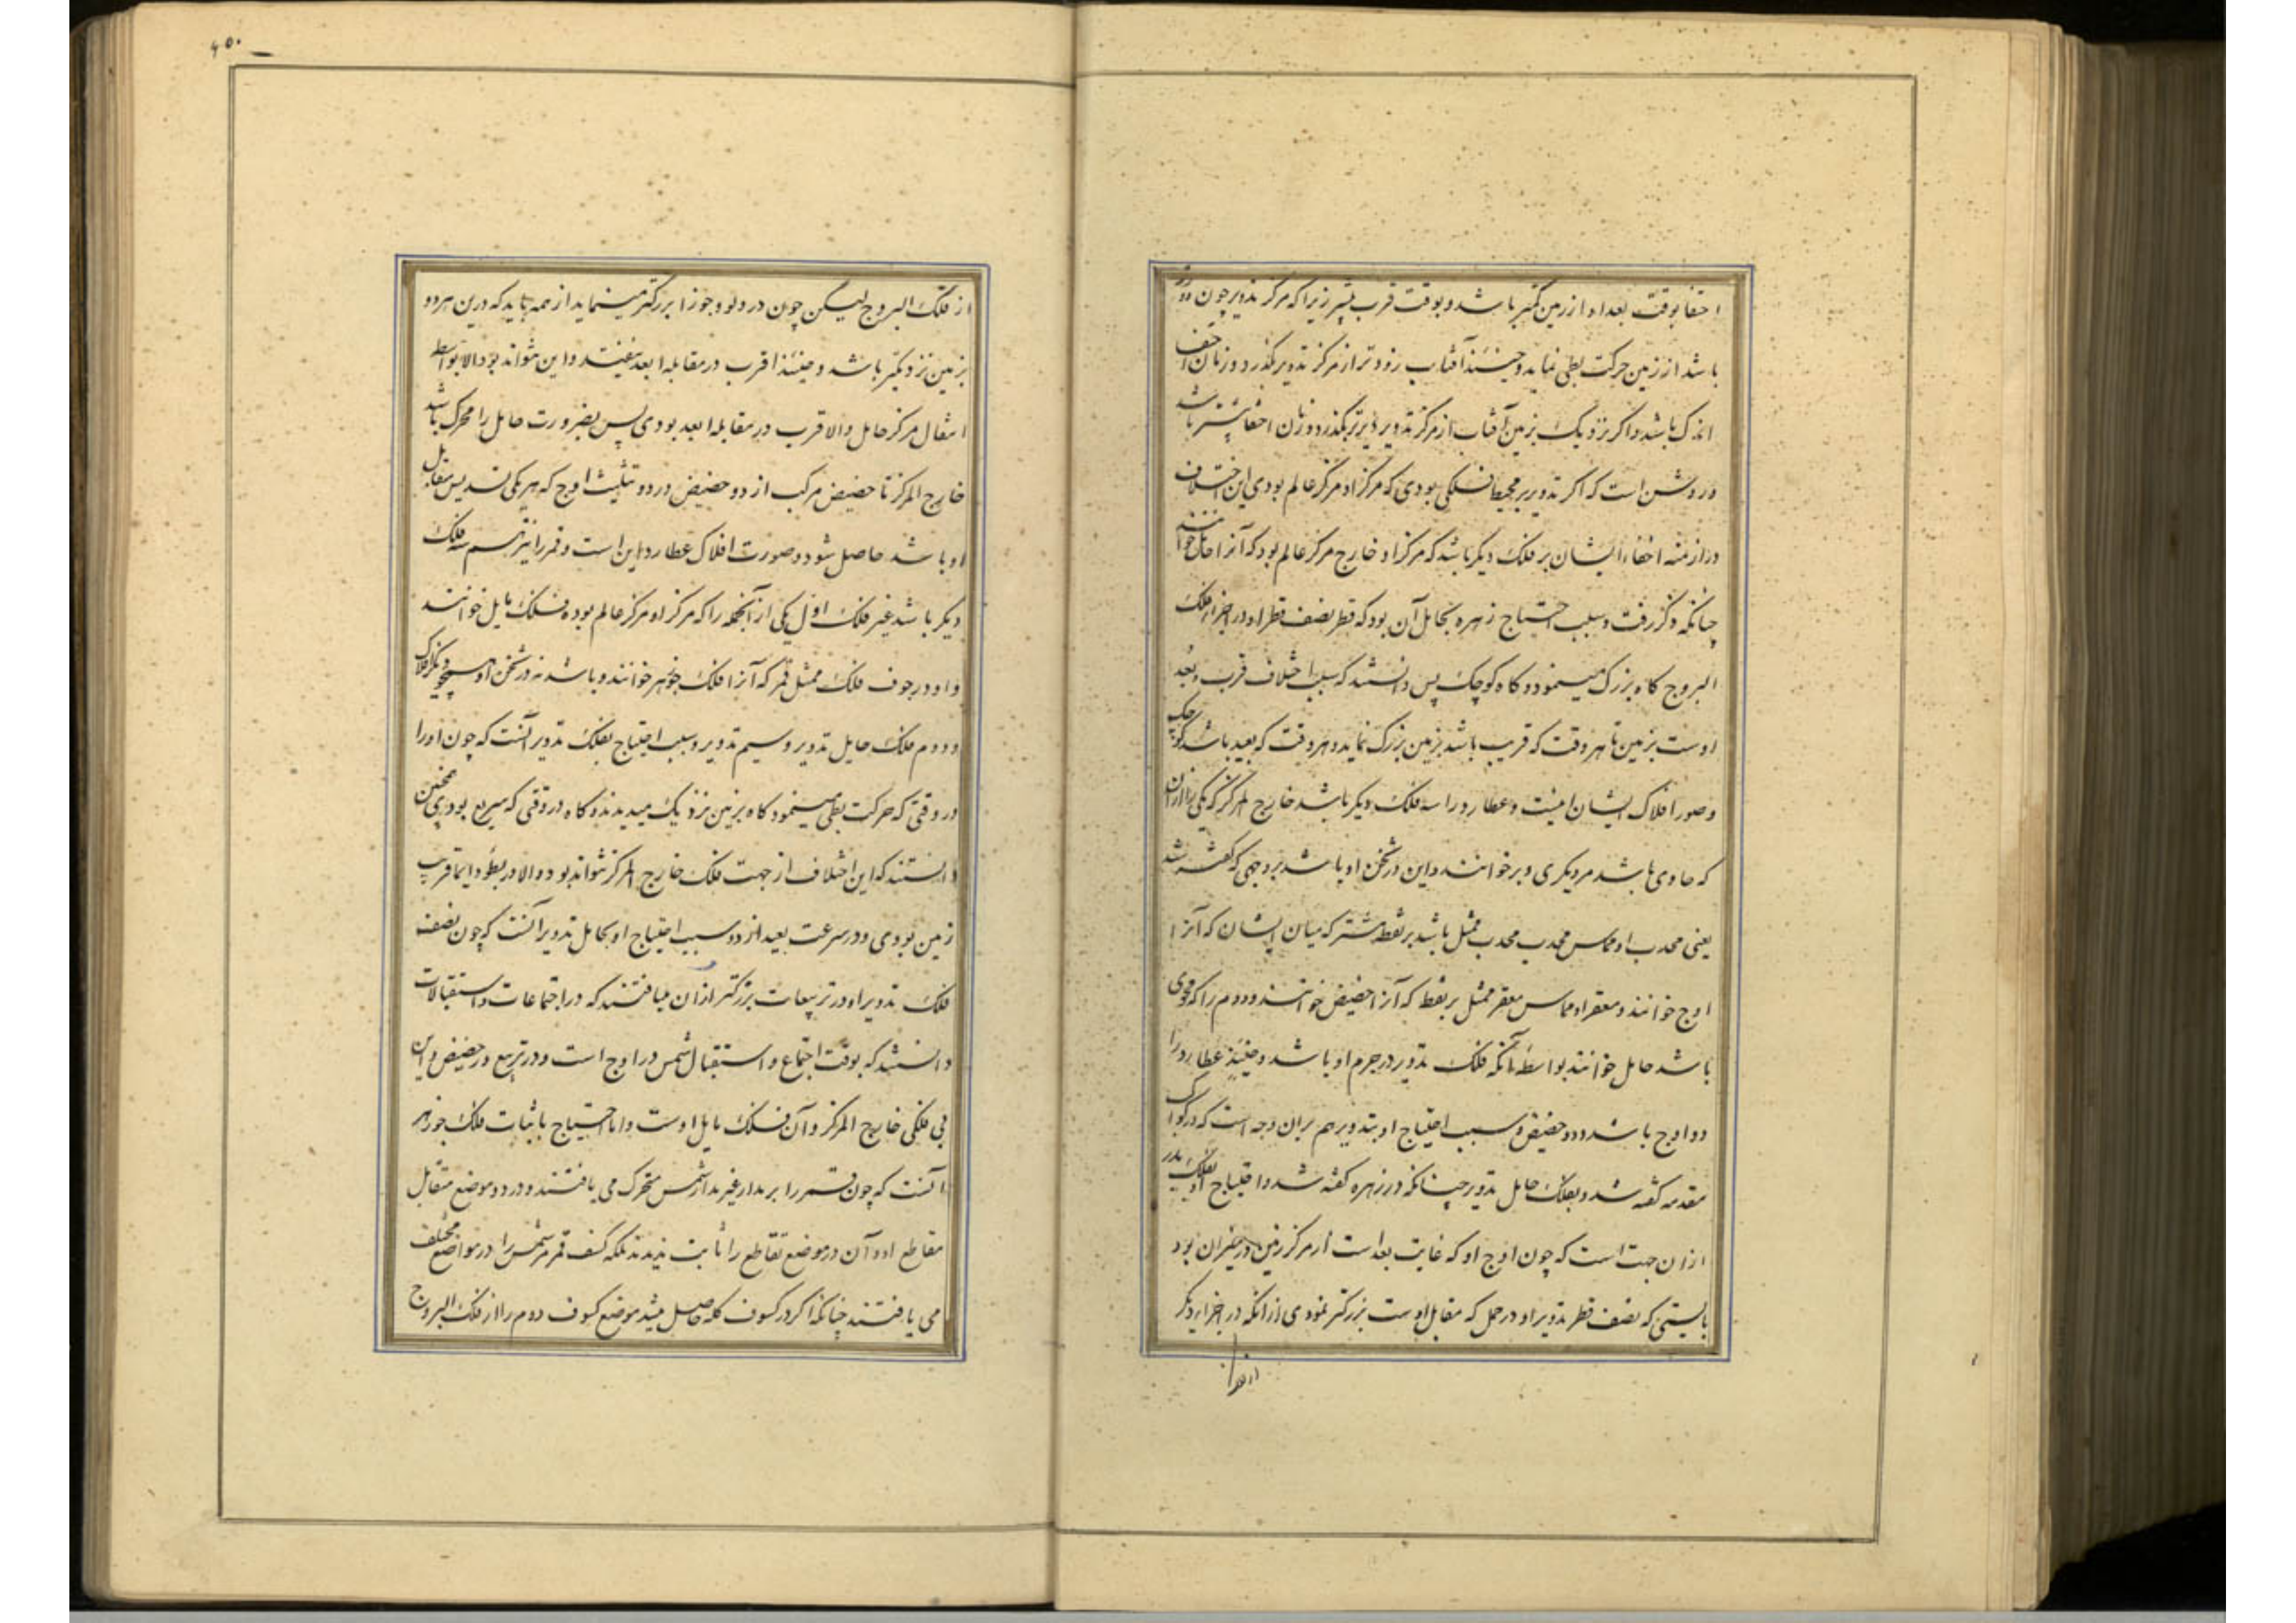 اختفا بوقت بعد او از زمین کمتر باشد و بوقت قرب بیشتر زیرا که مرکز تدویر چون دور
باشد از زمین حرکت بطی نماید و حینئذ آفتاب زودتر از مرکز تدویر بگذرد و زمان اختفا
اندک باشد و اگر نزدیک بزمین آفتاب از مرکز تدویر دیرتر بگذرد و زمان اختفا بیشتر باشد
و روشن است که اگر تدویر بر محیط فلکی بودی که مرکز او مرکز عالم بودی این اختلاف
در ازمنه اختفاء ایشان بر فلک دیگر باشد که مرکز او خارج مرکز عالم بود که آنرا حامل خوانند
چنانکه ذکر رفت و سبب احتیاج زهره بحامل آن بود که قطر نصف قطر او در اجزاء فلک
البروج گاه بزرگ مینمود و گاه کوچک پس دانستند که سبب اختلاف قرب و بعد
اوست بزمین تا هر وقت که قریب باشد بزمین بزرگ نماید و هر وقت که بعید باشد کوچک
و صور افلاک ایشان اینست و عطارد را سه فلک دیگر باشد خارج المرکز که یکی را از آن
که حاوی باشد مر دیگری را مدیر خوانند و این در ثخن او باشد بر وجهی که گفته شد
یعنی محدب او مماس محدب ممثل باشد بر نقطه مشترکه میان ایشان که آنرا
اوج خوانند و مقعر او مماس مقعر ممثل بر نقطه که آنرا حضیض خوانند و دوم را که محوی
باشد حامل خوانند بواسطه آنکه فلک تدویر در جرم او باشد و حینئذ عطارد را
دو اوج باشد و دو حضیض و سبب احتیاج او بتدویر هم بران وجه است که در کواکب
مقدمه گفته شد و بفلک حامل تدویر چنانکه در زهره گفته شد و احتیاج او بفلک مدیر
ازان جهت است که چون اوج او که غایت بعد است از مرکز زمین در میزان بود
بایستی که نصف قطر تدویر او در حمل که مقابل اوست بزرگتر نمودی از آنکه در اجزاء دیگر
۴۵۰
از فلک البروج لیکن چون در دلو و جوزا بزرگتر مینماید از همه باید که درین هر دو
بزمین نزدیکتر باشد و حینئذ اقرب در مقابله ابعد نیفتد و این نتواند بود الا بواسطه
انتقال مرکز حامل و الا قرب در مقابله ابعد بودی پس بضرورت حامل را محرک باشد
خارج المرکز تا حضیض مرکب از دو حضیض در دو تثلیث اوج که هر یکی تسدیس مقابل
او باشد حاصل شود و صورت افلاک عطارد این است و قمر را نیز سه فلک
دیگر باشد غیر فلک اول یکی از آنجمله را که مرکز او مرکز عالم بوده فلک مایل خوانند
و او در جوف فلک ممثل قمر که آنرا فلک جوزهر خوانند و باشد نه در ثخن او همچو دیگر افلاک
و دوم فلک حامل تدویر و سیم تدویر و سبب احتیاج بفلک تدویر آنست که چون او را
در وقتی که حرکت بطی مینمود گاه بزمین نزدیک میدیدند و گاه در وقتی که سریع بودی همچنین
دانستند که این اختلاف از جهت فلک خارج المرکز نتواند بود و الا در بطو دایما قریب
زمین بودی و در سرعت بعید ازو و سبب احتیاج او بحامل تدویر آنست که چون نصف
فلک تدویر او در تربیعات بزرگتر ازان میافتند که در اجتماعات و استقبالات
دانستند که بوقت اجتماع و استقبال شمس در اوج است و در تربیع در حضیض و این
بی فلکی خارج المرکز و آن فلک مایل اوست و اما احتیاج باثبات فلک جوزهر
آنست که چون قمر را بر مدار غیر مدار شمس متحرک می یافتند و در دو موضع متقابل
مقاطع او و آن در موضع تقاطع را ثابت ندیدند بلکه کسف قمر مر شمس را در مواضع مختلف
می یافتند چنانکه اگر در کسوف که حاصل میشد موضع کسوف دوم را از فلک البروج